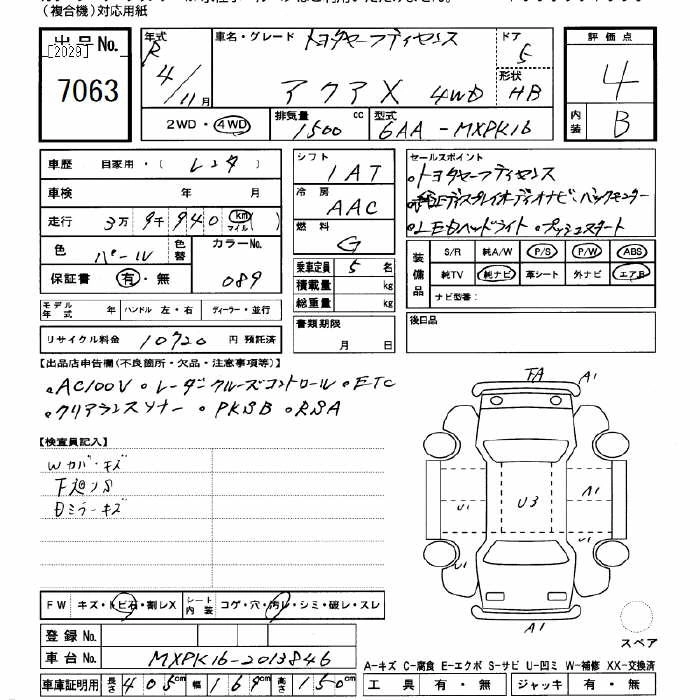 (複合機)対応用紙
出品No.
[2029]
7063
年式 R 4/11月
車名・グレード トヨタセーフティセンス
アクア X 4WD
ドア 5
形状 HB
2WD・4WD
排気量 1500 cc
型式 6AA-MXPK16
評価点 4
内装 B
車歴 自家用・(レンタ)
車検 年 月
走行 3万 9千 940 km マイル ( )
色 パール
色替
カラーNo. 089
保証書 有・無
モデル年式 年 ハンドル 左・右 ディーラー・並行
リサイクル料金 10720 円 預託済
シフト 1AT
冷房 AAC
燃料 G
乗車定員 5 名
積載量 kg
総重量 kg
書類期限 月 日
セールスポイント
・トヨタセーフティセンス
・純正ディスプレイオーディオナビ・バックモニター
・LEDヘッドライト ・プッシュスタート
装備品
S/R 純A/W P/S P/W ABS
純TV 純ナビ 革シート 外ナビ エアB
ナビ型番:
後日品
【出品店申告欄(不良箇所・欠品・注意事項等)】
・AC100V ・レーダークルーズコントロール ・ETC
・クリアランスソナー ・PKSB ・RSA
【検査員記入】
Wカバ・キズ
下廻リS
Dミラーキズ
FA A1
U1 U3 A1
U1 U1
A1
スペア
FW キズ・トビ石・割レX
シート内装 コゲ・穴・汚レ・シミ・破レ・スレ
登録No.
車台No. MXPK16-2013846
車庫証明用 長さ 405cm 幅 169cm 高さ 150cm
A-キズ C-腐食 E-エクボ S-サビ U-凹ミ W-補修 XX-交換済
工具 有・無 ジャッキ 有・無